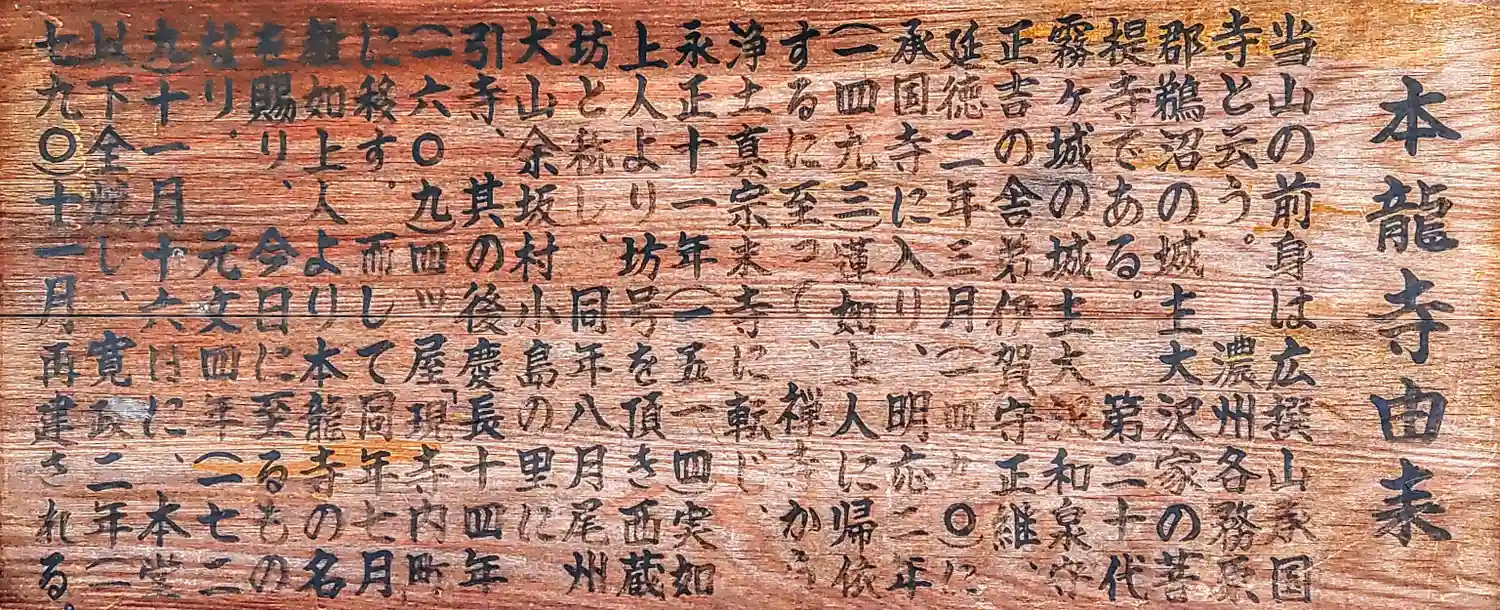 本龍寺由来
当山の前身は広撰山承国
寺と云う。 濃州各務原
郡鵜沼の城主大沢家の菩
提寺である。 第二十代
霧ヶ城の城主大沢和泉守
正吉の舎弟伊賀守正維、
延徳二年三月(一四九〇)に
承国寺に入り、明応二年
(一四九三)蓮如上人に帰依
するに至って、禅寺から
浄土真宗末寺に転じ、
永正十一年(一五一四)実如
上人より坊号を頂き西蔵
坊と称し、同年八月尾州
犬山余坂村小島の里に
引寺、其の後慶長十四年
(一六〇九)四ッ屋「現寺内町
に移す。而して同年七月
教如上人より本龍寺の名
を賜り、今日に至るもの
なり。 元文四年(一七二
九)十一月十六はに、本堂
以下全焼し、寛政二年(一
七九〇)十一月再建される。